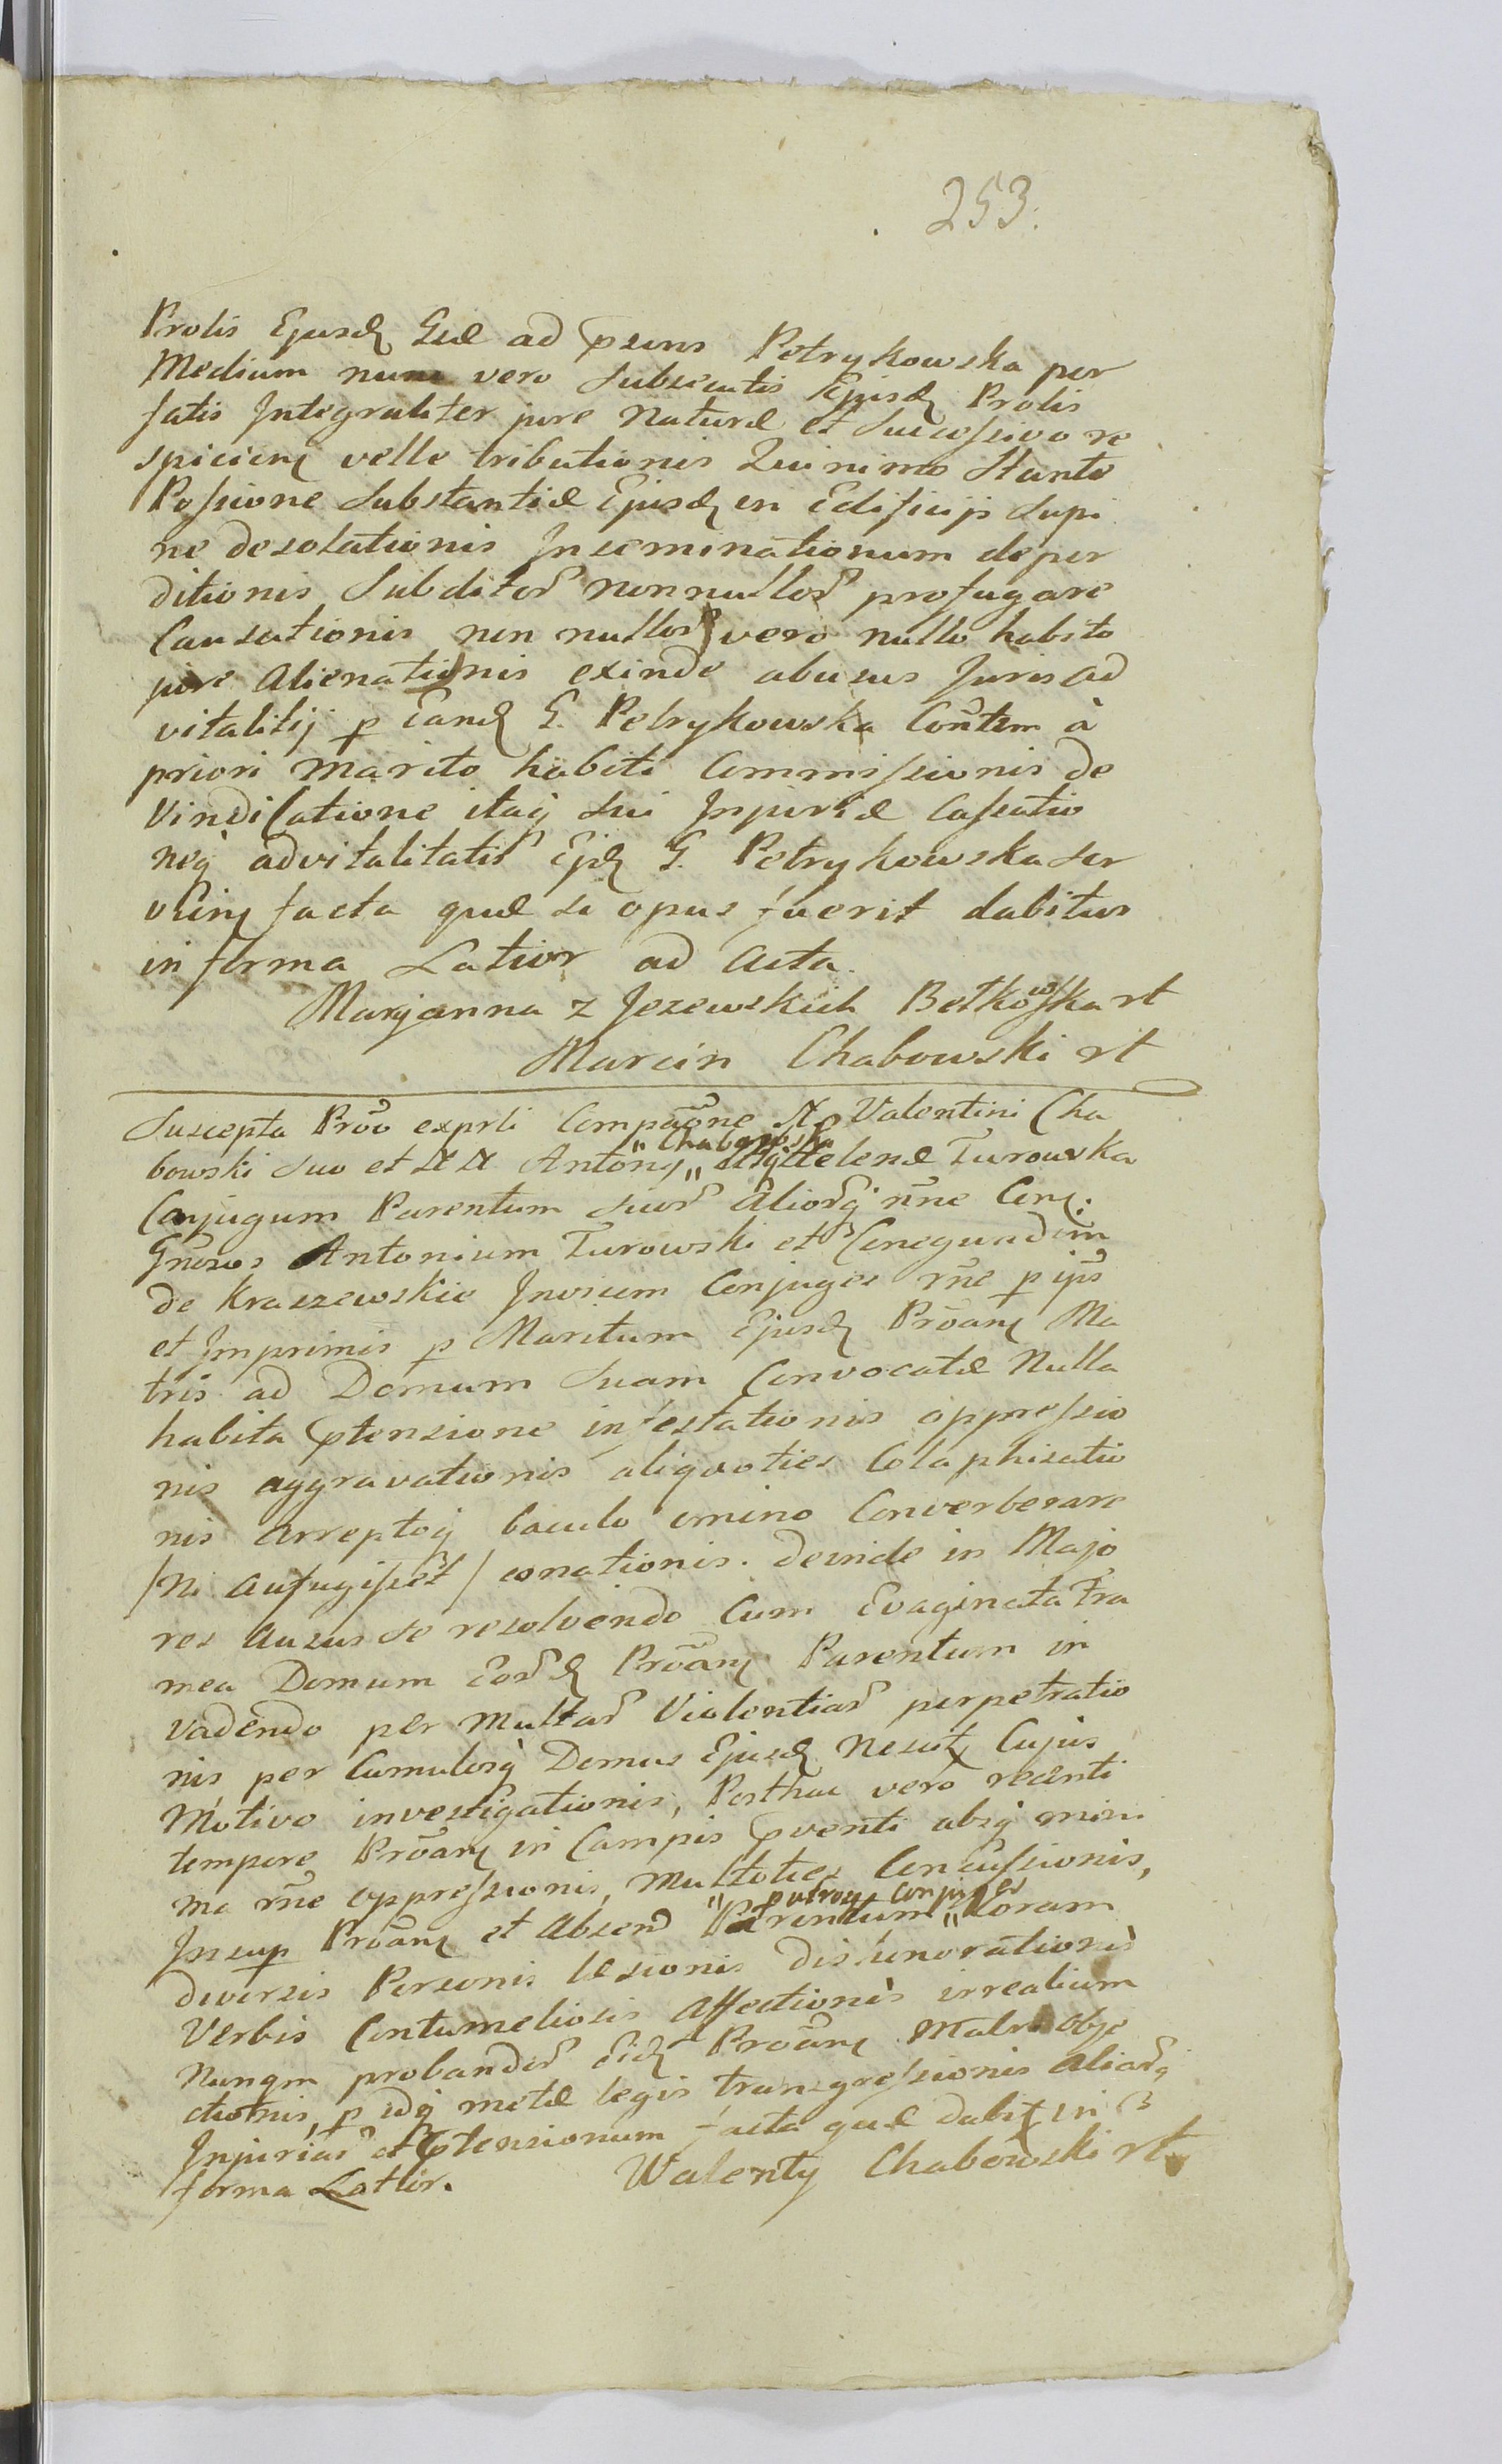 253.
Prolis Ejusd Gsæ ad psens Petrykowska per
Medium nunc vero Subsecutis Ejusd Prolis
fatis Integraliter jure Naturæ et Successivo re
spicien velle tributionis Quinimo Stante
Possione Substantiæ Ejusd in Edificijs Supi
ne desolationis Inseminationum deper
ditionis Subditor nonnullor profugare
Causationis non nullor vero nullo habito
jure Alienationis exinde abusus Juris ad
vitalitij p Eand G. Petrykowska Contem à
priori Marito habiti Commissionis de
Vindicatione itaq sui Injuriæ Cassatio
neq advitalitatis Ejd G. Petrykowska ser
vien facta quæ si opus fuerit dabitur
in forma Latior ad Acta.
Maryanna z Jezewskich Betkowska rt
Marcin Chabowski rt
Suscepta Prõo exprli Compaõne N Valentini Cha
bowski suo et NN Antony " Chabowski " Helenæ Turowska
Conjugum Parentum suor Aliorq nñe Con:
Gñosos Antonium Turowski et Conegundem
de Kraszewskie Inosum Conjuges rñe p ips
et Imprimis p Maritum Ejusd Prõan Ma
tris ad Domum Suam Convocatæ Nulla
habita ptensione infestationis oppressio
nis aggravationis aliquoties Colaphisatio
nis arreptoq baculo omino Converberare
/Ni aufugisset/ conationis. deinde in Majo
res Ausus se resolvendo Cum Evaginata Fra
mea Domum Eord Prõan Parentum in
vadendo per Multar Violentiar perpetratio
nis per Cumulosq Domus Ejusd Nesut Cujus
Motivo investigationis, Posthac vero recenti
tempore Prõan in Campis pventi absq mini
ma rñe oppressionis, Multoties Concussionis,
Insup Prõan et Absen " patrosq Conjuges " Coram
diversis Personis læsionis dishonorationis
Verbis Contumeliosis Affectionis irrealium
Nunqm probandor Eid Prõan Malor obje
ctionis, p idq metæ legis transgressionis aliarq
Injuriar et ptensionum facta quæ dabit in
forma Latior. Walenty Chabowski rt